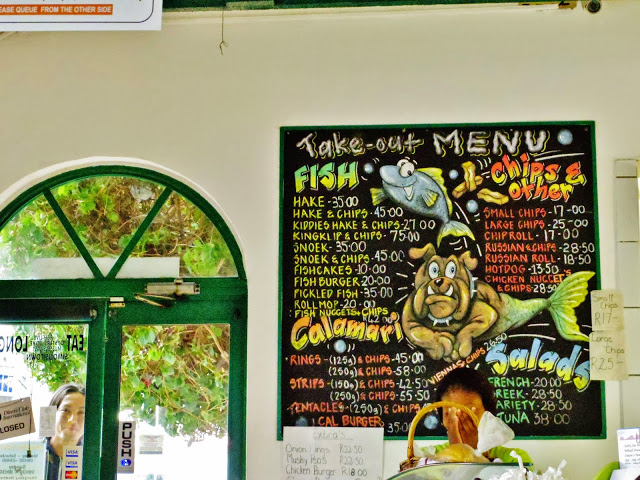 EASE QUEUE FROM THE OTHER SIDE
Take-out MENU
FISH
HAKE - 35-00
HAKE & CHIPS - 45-00
KIDDIES HAKE & CHIPS - 27-00
KINGKLIP & CHIPS - 75-00
SNOEK - 35-00
SNOEK & CHIPS - 45-00
FISHCAKES - 10-00
FISH BURGER - 20-00
PICKLED FISH - 35-00
ROLLMOP - 20-00
FISH NUGGETS & CHIPS
R42.00
Calamari
RINGS - (125g) & CHIPS - 45-00
(250g) & CHIPS - 58-00
STRIPS - (150g) & CHIPS - 42-50
(250g) & CHIPS - 55-50
TENTACLES - (250g) & CHIPS
CAL BURGER 35-00
Chips & Other
SMALL CHIPS - 17-00
LARGE CHIPS - 25-00
CHIP ROLL - 17-00
RUSSIAN & CHIPS - 28-50
RUSSIAN ROLL - 18-00
HOTDOG - 13-50
CHICKEN NUGGETS
& CHIPS - 28-50
VIENNAS CHIPS 26-50
Salads
FRENCH - 20-00
REEK - 28-50
ARIETY - 28-50
TUNA 38-00
Small Chips
R17-
Large Chips
R25-
Onion Rings - R22-50
Mushy Peas R22-50
Chicken Burger R18-00
EAT
LONG
SIMONSTOWN
LOSED
PUSH
VISA
VISA